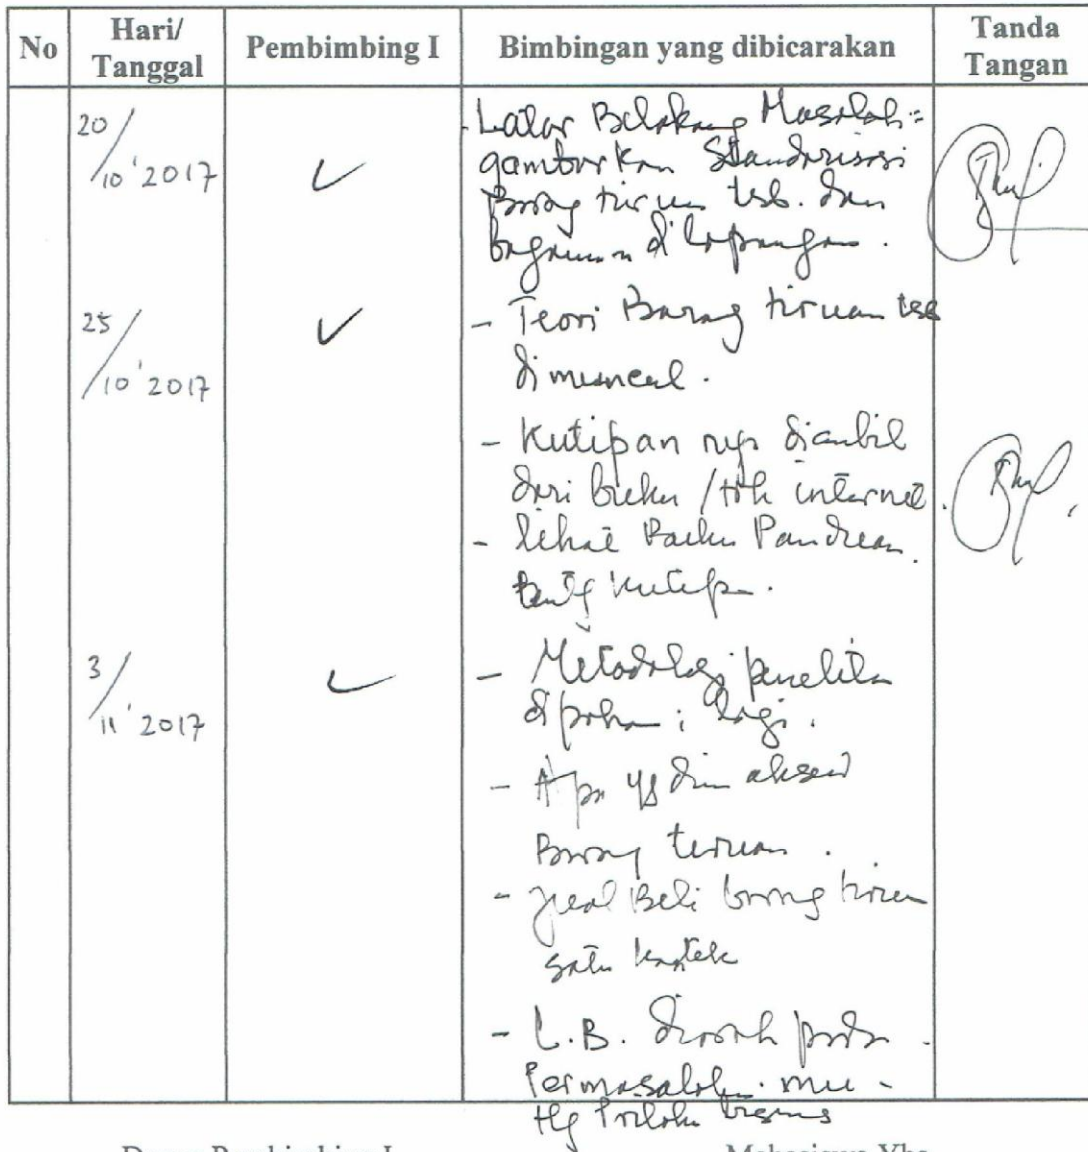 No
Hari/
Tanggal
Pembimbing I
Bimbingan yang dibicarakan
Tanda
Tangan
20/10'2017
- Latar Belakang Masalah:
gambarkan Standarisasi
Barang tiruan tsb. dan
di lapangan.
25/10'2017
- Teori Barang tiruan tsb
dimuncul.
- Kutipan diambil
dari buku / internet.
- lihat Buku Panduan
kutip
3/11'2017
- Metodologi penelitian
lagi.
- Apa yg dimaksud
Barang tiruan.
- Jual Beli barang tiruan
satu
- L.B. pada
Permasalahan
bisnis
Dosen Pembimbing I
Mahasiswa Ybs